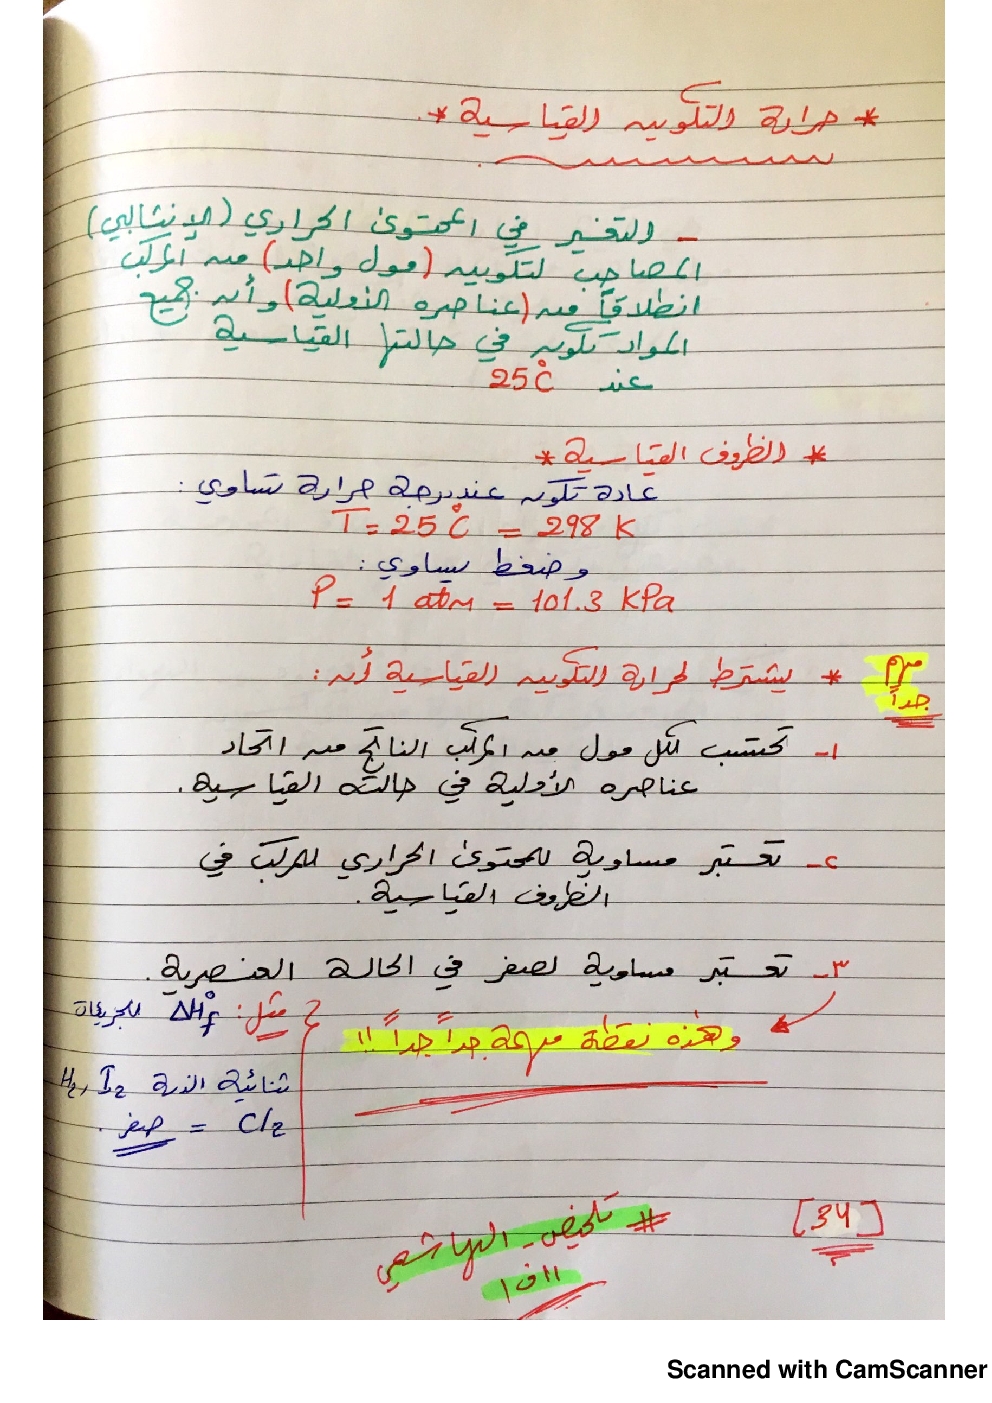 * حرارة التكوين القياسية *
- التغير في المحتوى الحراري (الإنثالبي)
المصاحب لتكوين (مول واحد) من المركب
انطلاقاً من (عناصره الأولية) وأن جميع
المواد تكون في حالتها القياسية
عند 25°C
* الظروف القياسية *
عادة تكون عند درجة حرارة تساوي :
T = 25°C = 298 K
وضغط يساوي :
P = 1 atm = 101.3 KPa
مهم
جداً
* يشترط لحرارة التكوين القياسية أن :
١- تحتسب لكل مول من المركب الناتج من اتحاد
عناصره الأولية في حالته القياسية .
٢- تعتبر مساوية للمحتوى الحراري للمركب في
الظروف القياسية .
٣- تعتبر مساوية لصفر في الحالة العنصرية .
وهذه نقطة مهمة جداً جداً !!
مثل : ΔH°f للجزيئات
ثنائية الذرة H2, I2
Cl2 = صفر .
[34]
# تلخيص - الهاشمي
١١ف١
Scanned with CamScanner